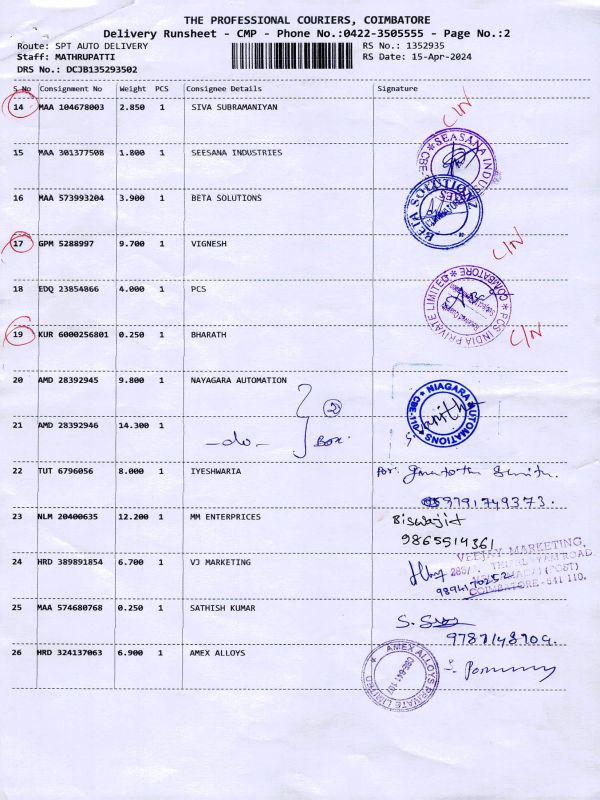 THE PROFESSIONAL COURIERS, COIMBATORE
Delivery Runsheet - CMP - Phone No.:0422-3505555 - Page No.:2
Route: SPT AUTO DELIVERY RS No.: 1352935
Staff: MATHRUPATTI RS Date: 15-Apr-2024
DRS No.: DCJB135293502
S No Consignment No Weight PCS Consignee Details Signature
14 MAA 104678003 2.850 1 SIVA SUBRAMANIYAN C/N
15 MAA 301377508 1.800 1 SEESANA INDUSTRIES
SEASANA INDUS CBE
16 MAA 573993204 3.900 1 BETA SOLUTIONS
BETA SOLUTIONZ
17 GPM 5288997 9.700 1 VIGNESH C/N
18 EDQ 23854866 4.000 1 PCS
PCS INDIA PRIVATE LIMITED COIMBATORE
19 KUR 6000256801 0.250 1 BHARATH C/N
20 AMD 28392945 9.800 1 NAYAGARA AUTOMATION
NIAGARA AUTOMATIONS CBE-
2
21 AMD 28392946 14.300 1 -do- Box.
22 TUT 6796056 8.000 1 IYESHWARIA
9791749373.
23 NLM 20400635 12.200 1 MM ENTERPRICES Biswajit
9865514361
24 HRD 389891854 6.700 1 VJ MARKETING
VEEJAY MARKETING,
ROAD
(POST)
COIMBATORE - 641 110.
25 MAA 574680768 0.250 1 SATHISH KUMAR
26 HRD 324137063 6.900 1 AMEX ALLOYS
AMEX ALLOYS PRIVATE LIMITED
CBE-641 107